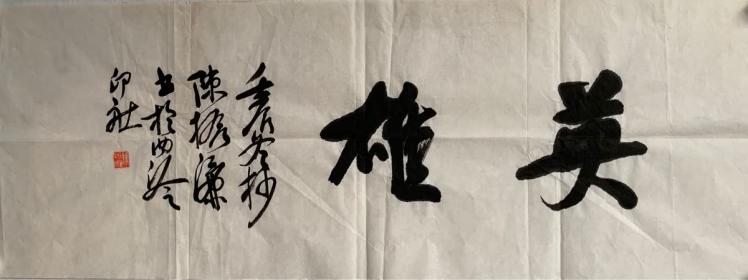 英雄
壬辰冬杪
陳振濂
书於西泠
印社